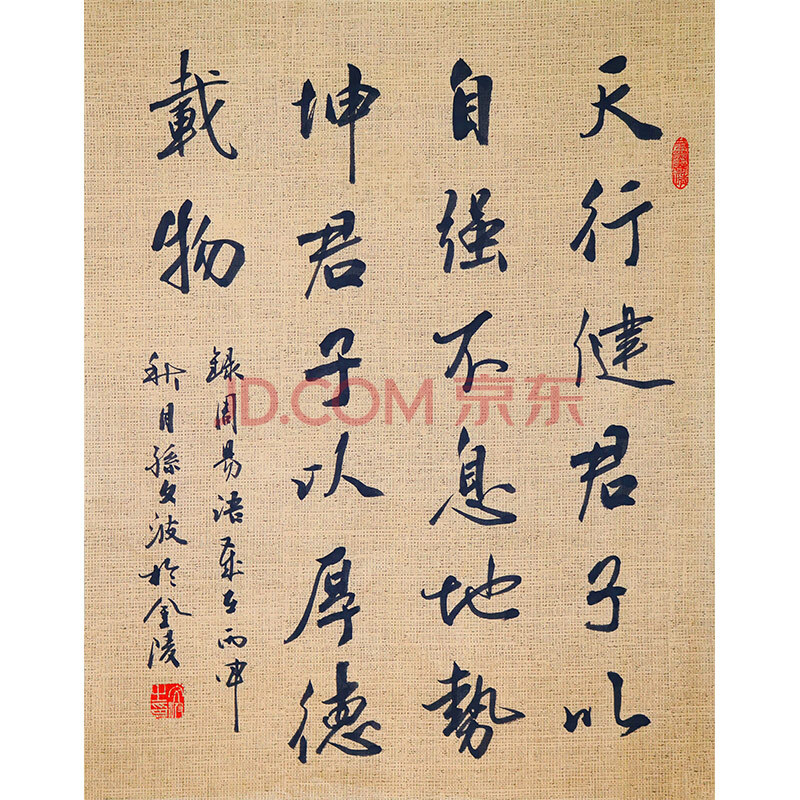 天行健君子以
自强不息地勢
坤君子以厚德
載物
録周易语歲在丙申
秋月孫文波於金陵
JD.COM 京东